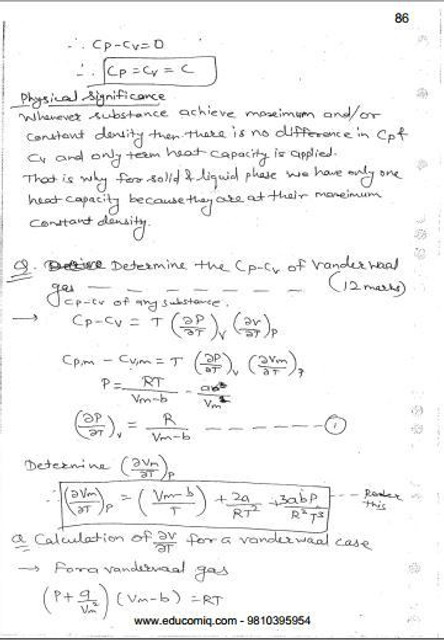 86
∴ Cp-Cv=0
∴ Cp = Cv = C
Physical Significance
Whenever substance achieve maximum and/or
constant density then there is no difference in Cp &
Cv and only term heat capacity is applied.
That is why for solid & liquid phase we have only one
heat capacity because they are at their maximum
constant density.
Q. Determine the Cp-Cv of Vanderwaal
gas — — — — — — — (12 marks)
Cp-Cv of any substance.
→ Cp-Cv = T (∂P/∂T)v (∂V/∂T)p
Cp,m - Cv,m = T (∂P/∂T)v (∂Vm/∂T)p
P = RT/Vm-b - a/Vm²
(∂P/∂T)v = R/Vm-b — — — — — — ①
Determine (∂Vm/∂T)p
∴ (∂Vm/∂T)p = (Vm-b/T) + 2a/RT² + 3abP/R²T³ --- this
Q Calculation of ∂V/∂T for a vanderwaal case
→ For a vanderwaal gas
(P + a/Vm²) (Vm-b) = RT
www.educomiq.com - 9810395954